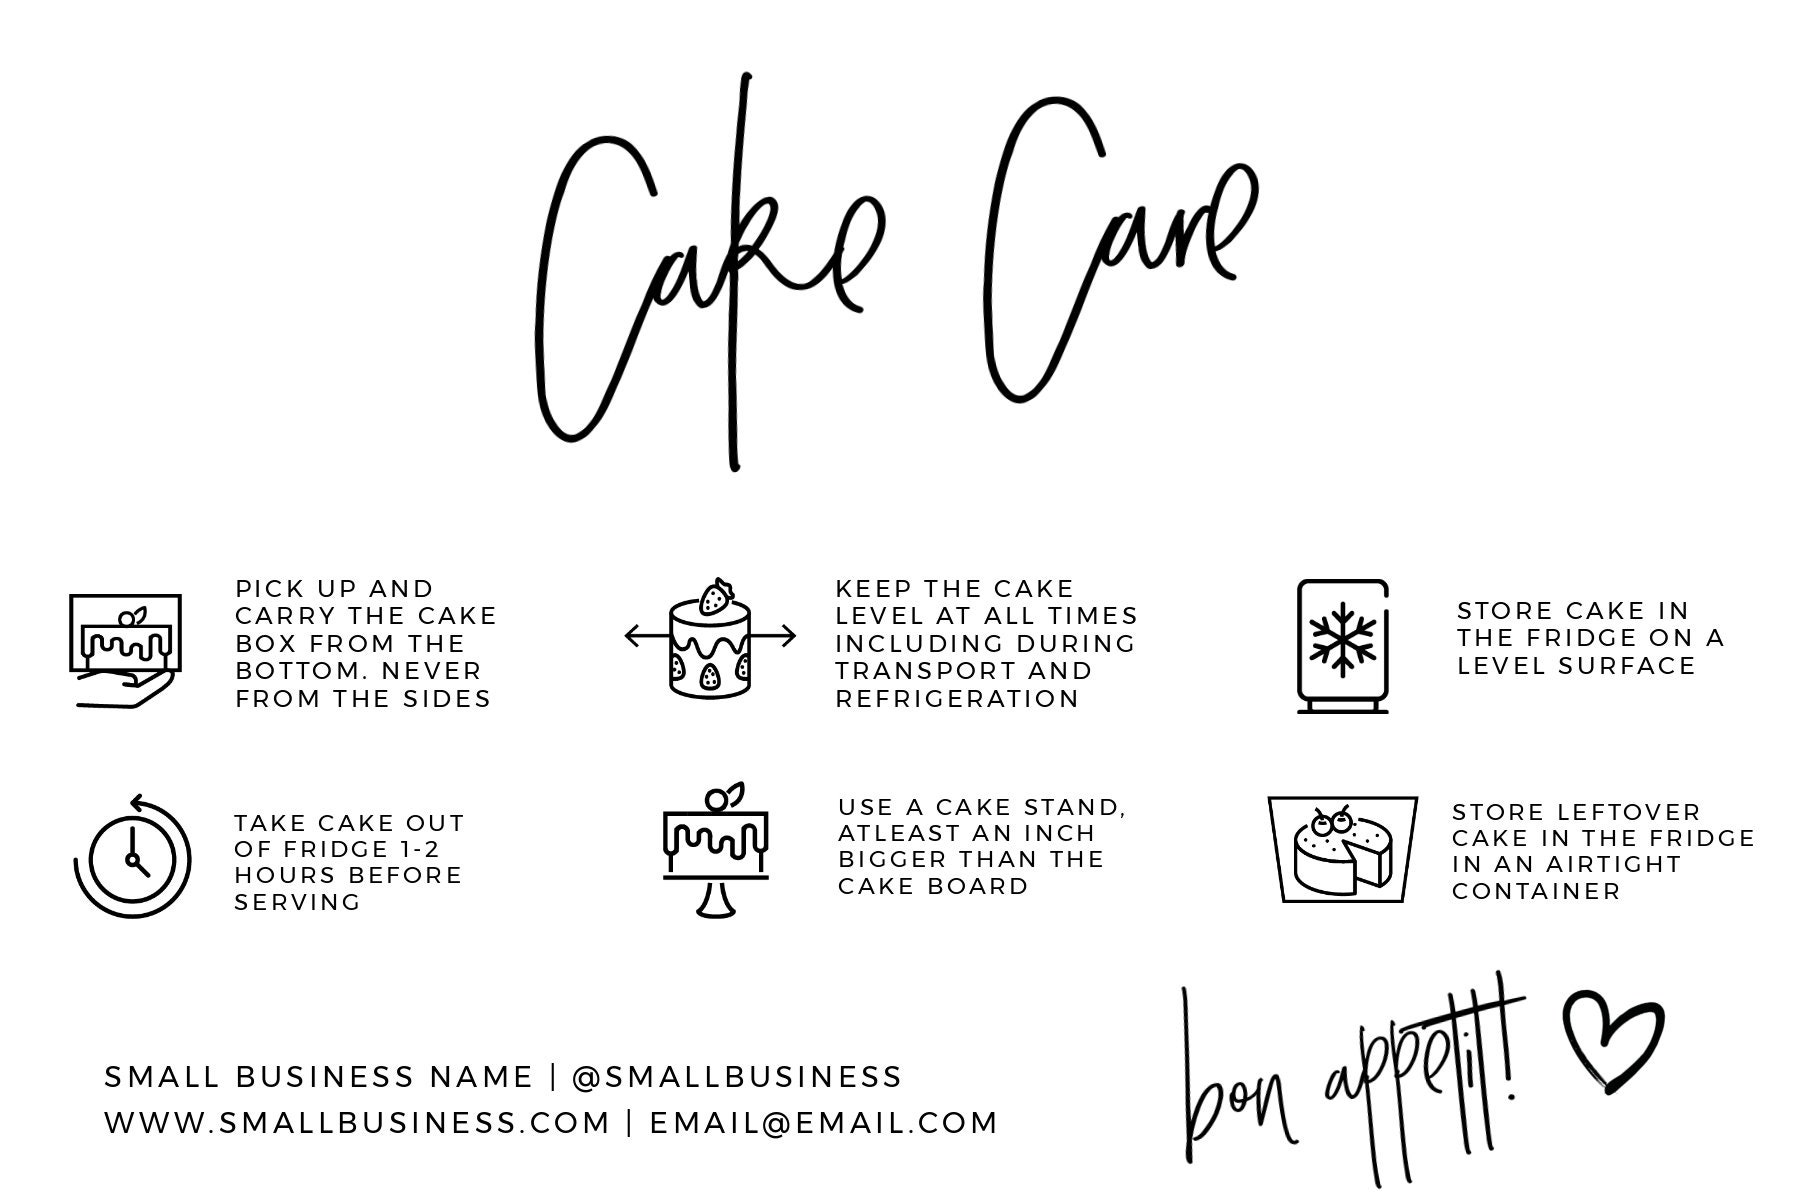 Cake Care
PICK UP AND
CARRY THE CAKE
BOX FROM THE
BOTTOM. NEVER
FROM THE SIDES
KEEP THE CAKE
LEVEL AT ALL TIMES
INCLUDING DURING
TRANSPORT AND
REFRIGERATION
STORE CAKE IN
THE FRIDGE ON A
LEVEL SURFACE
TAKE CAKE OUT
OF FRIDGE 1-2
HOURS BEFORE
SERVING
USE A CAKE STAND,
ATLEAST AN INCH
BIGGER THAN THE
CAKE BOARD
STORE LEFTOVER
CAKE IN THE FRIDGE
IN AN AIRTIGHT
CONTAINER
SMALL BUSINESS NAME | @SMALLBUSINESS
WWW.SMALLBUSINESS.COM | EMAIL@EMAIL.COM
bon appetit!